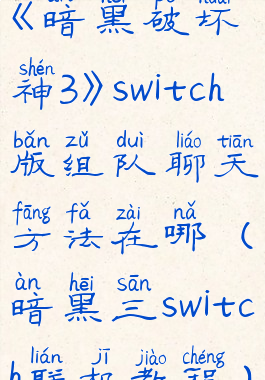 《暗黑破坏
shén
神3》switch
bǎn zǔ duì liáo tiān
版组队聊天
fāng fǎ zài nǎ
方法在哪（
àn hēi sān
暗黑三switc
lián jī jiào chéng
h联机教程）